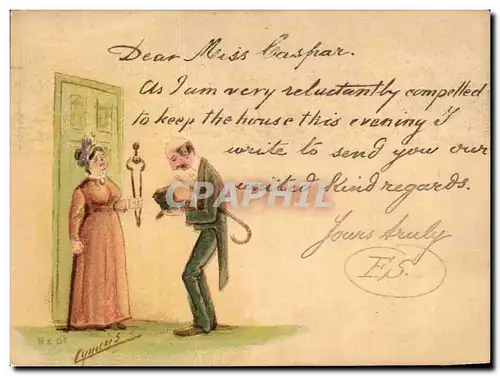 Dear Miss Caspar.
As I am very reluctantly compelled
to keep the house this evening I
write to send you our
united kind regards.
Yours truly
F.S.
CPHARIL
Cynicus